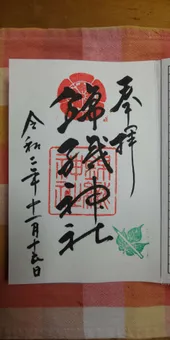 奉拝
錦織神社
令和二年十一月十五日